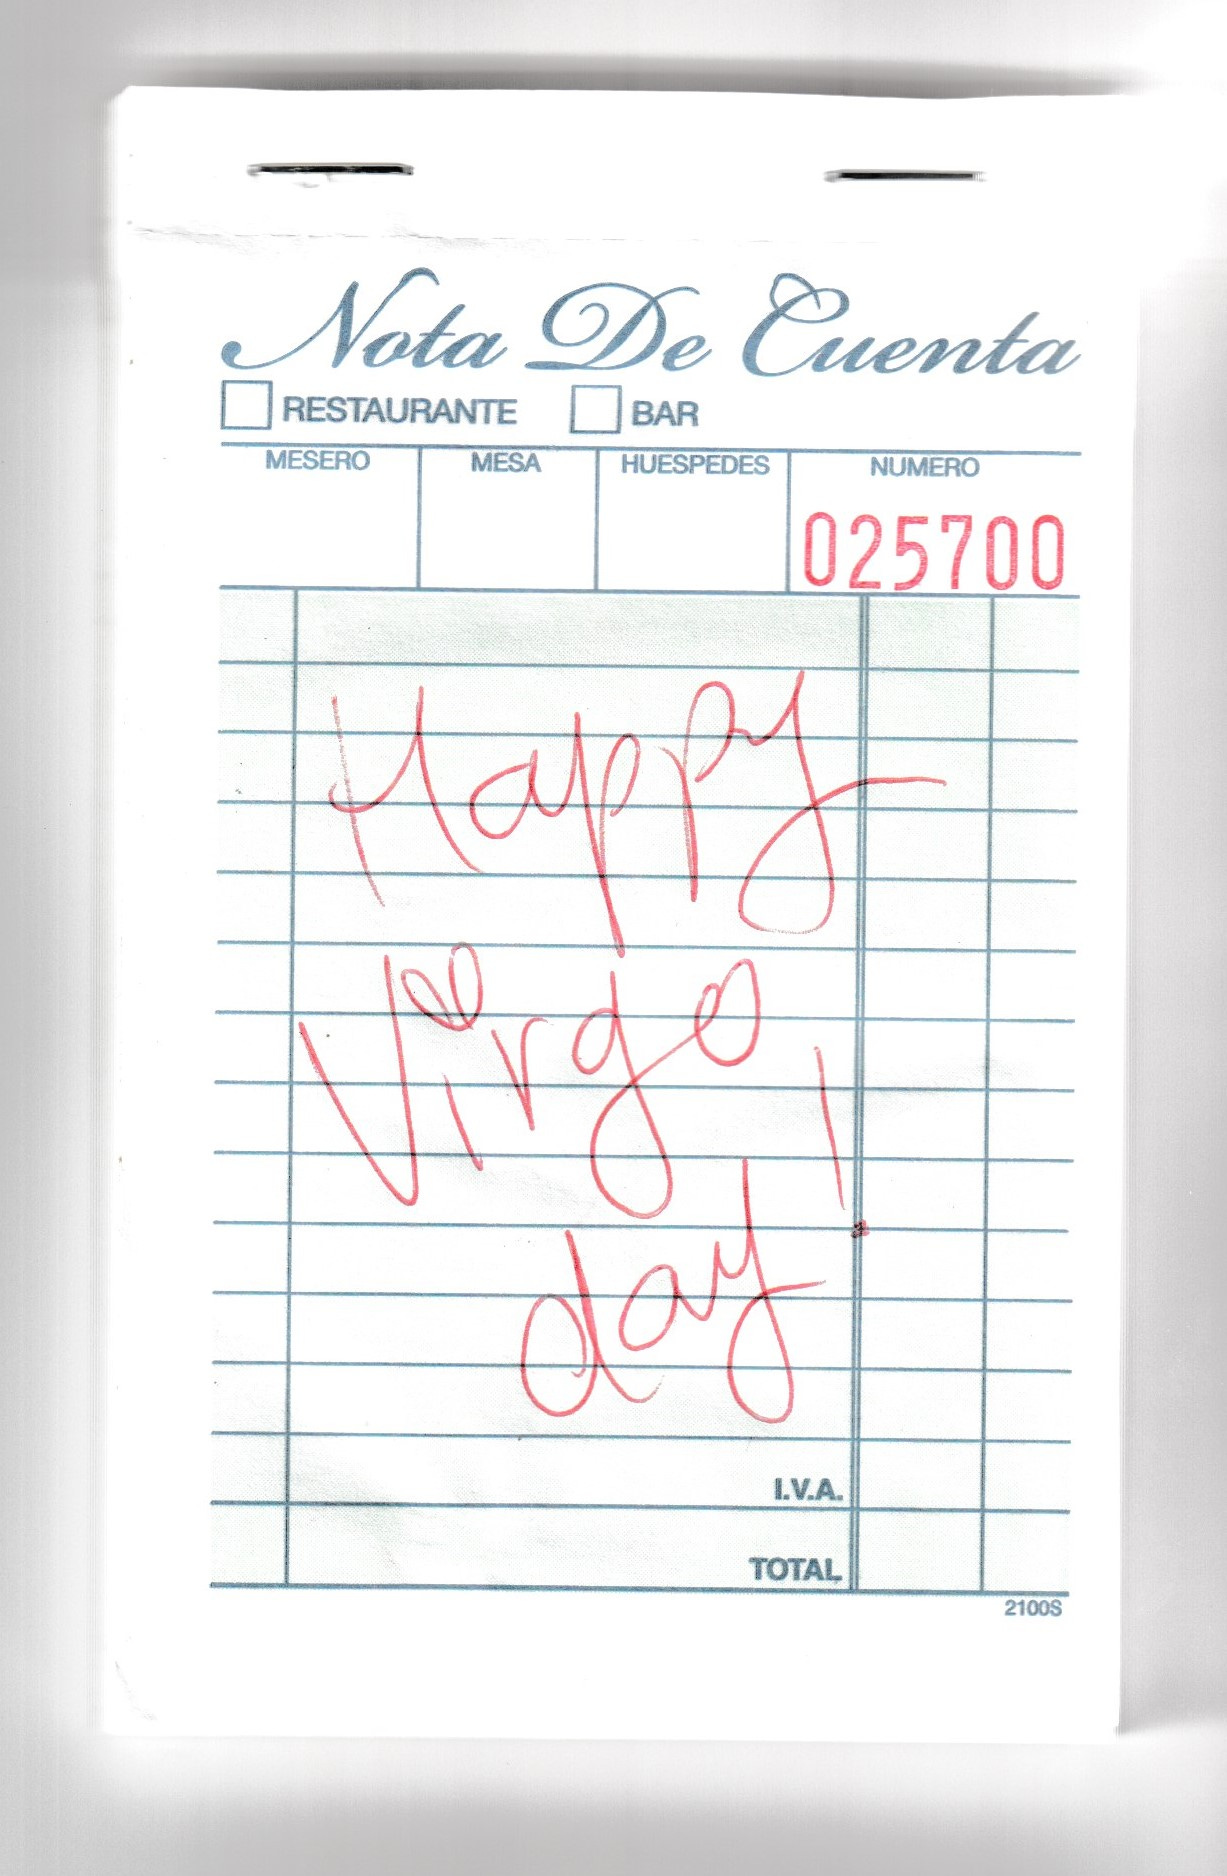 Nota De Cuenta
RESTAURANTE BAR
MESERO MESA HUESPEDES NUMERO
025700
Happy
Virgo
day!
I.V.A.
TOTAL
2100S